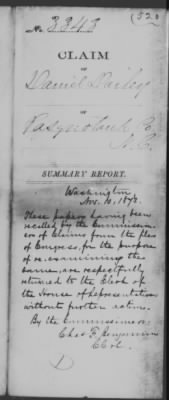 (520
No. 3343
CLAIM
OF
Daniel Bailey
OF
Pasquotank Co.
N.C.
SUMMARY REPORT.
Washington
Nov. 10, 187
These papers having been
recalled by the Commission-
ers of Claims from the files
of Congress, for the purpose
of re-examining the
same, are respectfully
returned to the Clerk of
the House of Representatives
without further action.
By the Commissioners
Chas. F. Benjamin
Clerk